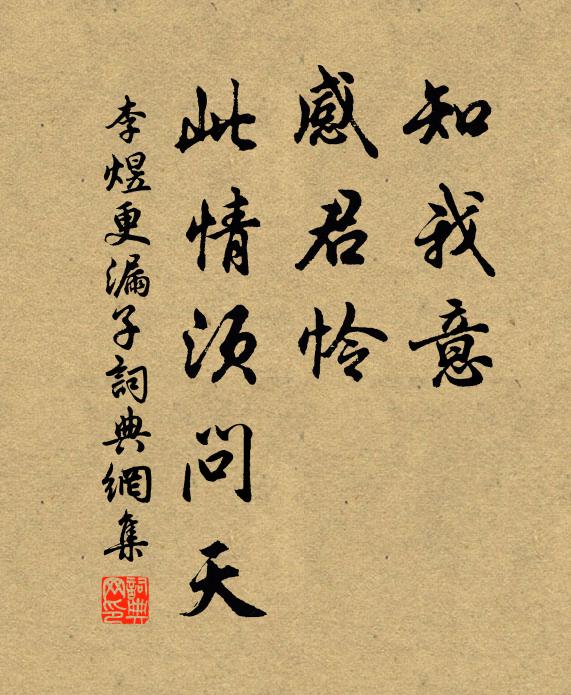 知我意
感君怜
此情須問天
李煜更漏子詞典網集
詞典网印